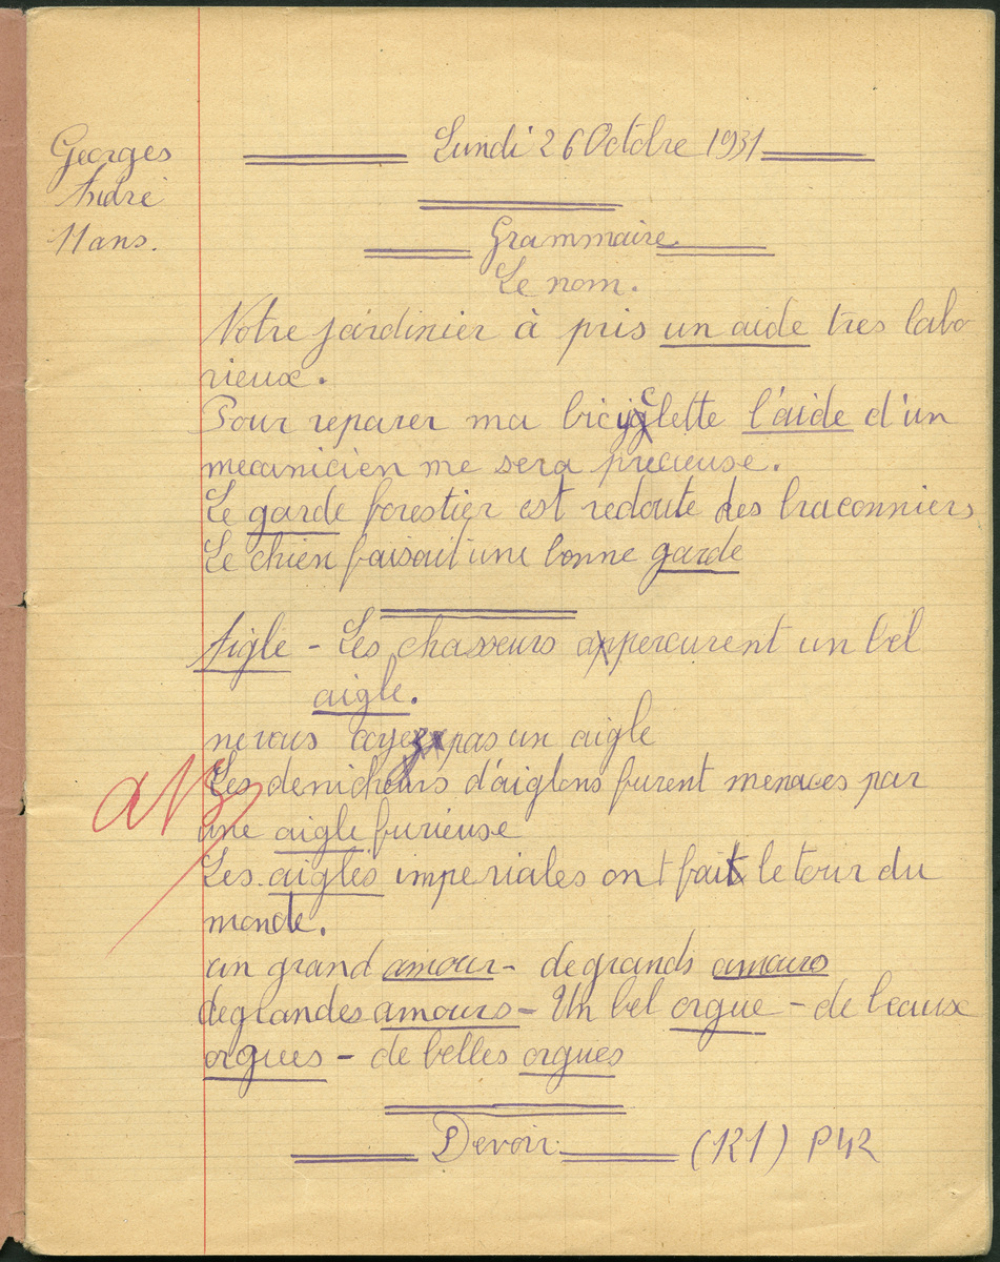 Georges
André
11 ans.
Lundi 26 Octobre 1931
Grammaire
Le nom.
Notre jardinier à pris un aide tres labo
rieux.
Pour reparer ma bicyclette l'aide d'un
mecanicien me sera precieuse.
Le garde forestier est redoute des braconniers
Le chien faisait une bonne garde
Aigle - Les chasseurs appercurent un bel
aigle.
ne vous coyez pas un aigle
Les denicheurs d'aiglons furent menaces par
une aigle furieuse
Les aigles imperiales ont fait le tour du
monde.
un grand amour - de grands amours
de grandes amours - Un bel orgue - de beaux
orgues - de belles orgues
Devoir (121) P42